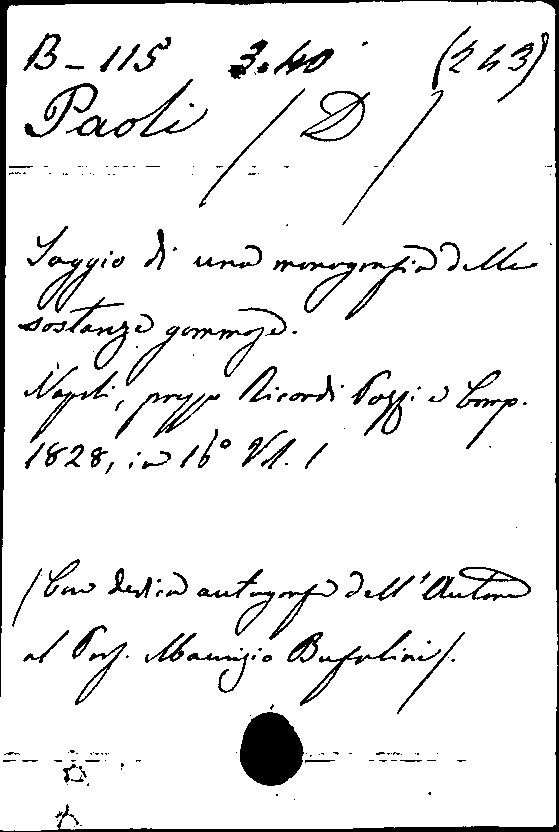 B-115 3.40 (243)
Paoli / D /
Saggio di una monografia delle
sostanze gommose.
Napoli, presso Ricordi Pozzi e Comp.
1828, in 16° Vol. 1
/Con dedica autografa dell'Autore
al Prof. Maurizio Bufalini/.